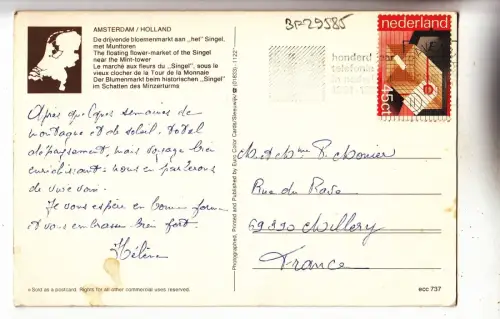 AMSTERDAM / HOLLAND
De drijvende bloemenmarkt aan „het" Singel,
met Munttoren
The floating flower-market of the Singel
near the Mint-tower
Le marché aux fleurs du „Singel", sous le
vieux clocher de la Tour de la Monnaie
Der Blumenmarkt beim historischen „Singel"
im Schatten des Münzerturms
Après quelques semaines de
montagne et de soleil, total
dépaysement, mais voyage bien
enrichissant. Nous en parlerons
de vive voix.
Je vous espère en bonne forme
et vous embrasse bien fort.
Hélène
* Sold as a postcard. Rights for all other commercial uses reserved.
Photographed, Printed and Published by Euro Color Cards/Sleeuwijk/ ☎ (01833) - 11 22*
BF29585
nederland
45ct
honderd jaar
telefonie
M. et Mme R.
Rue du
69390 Millery
France
ecc 737